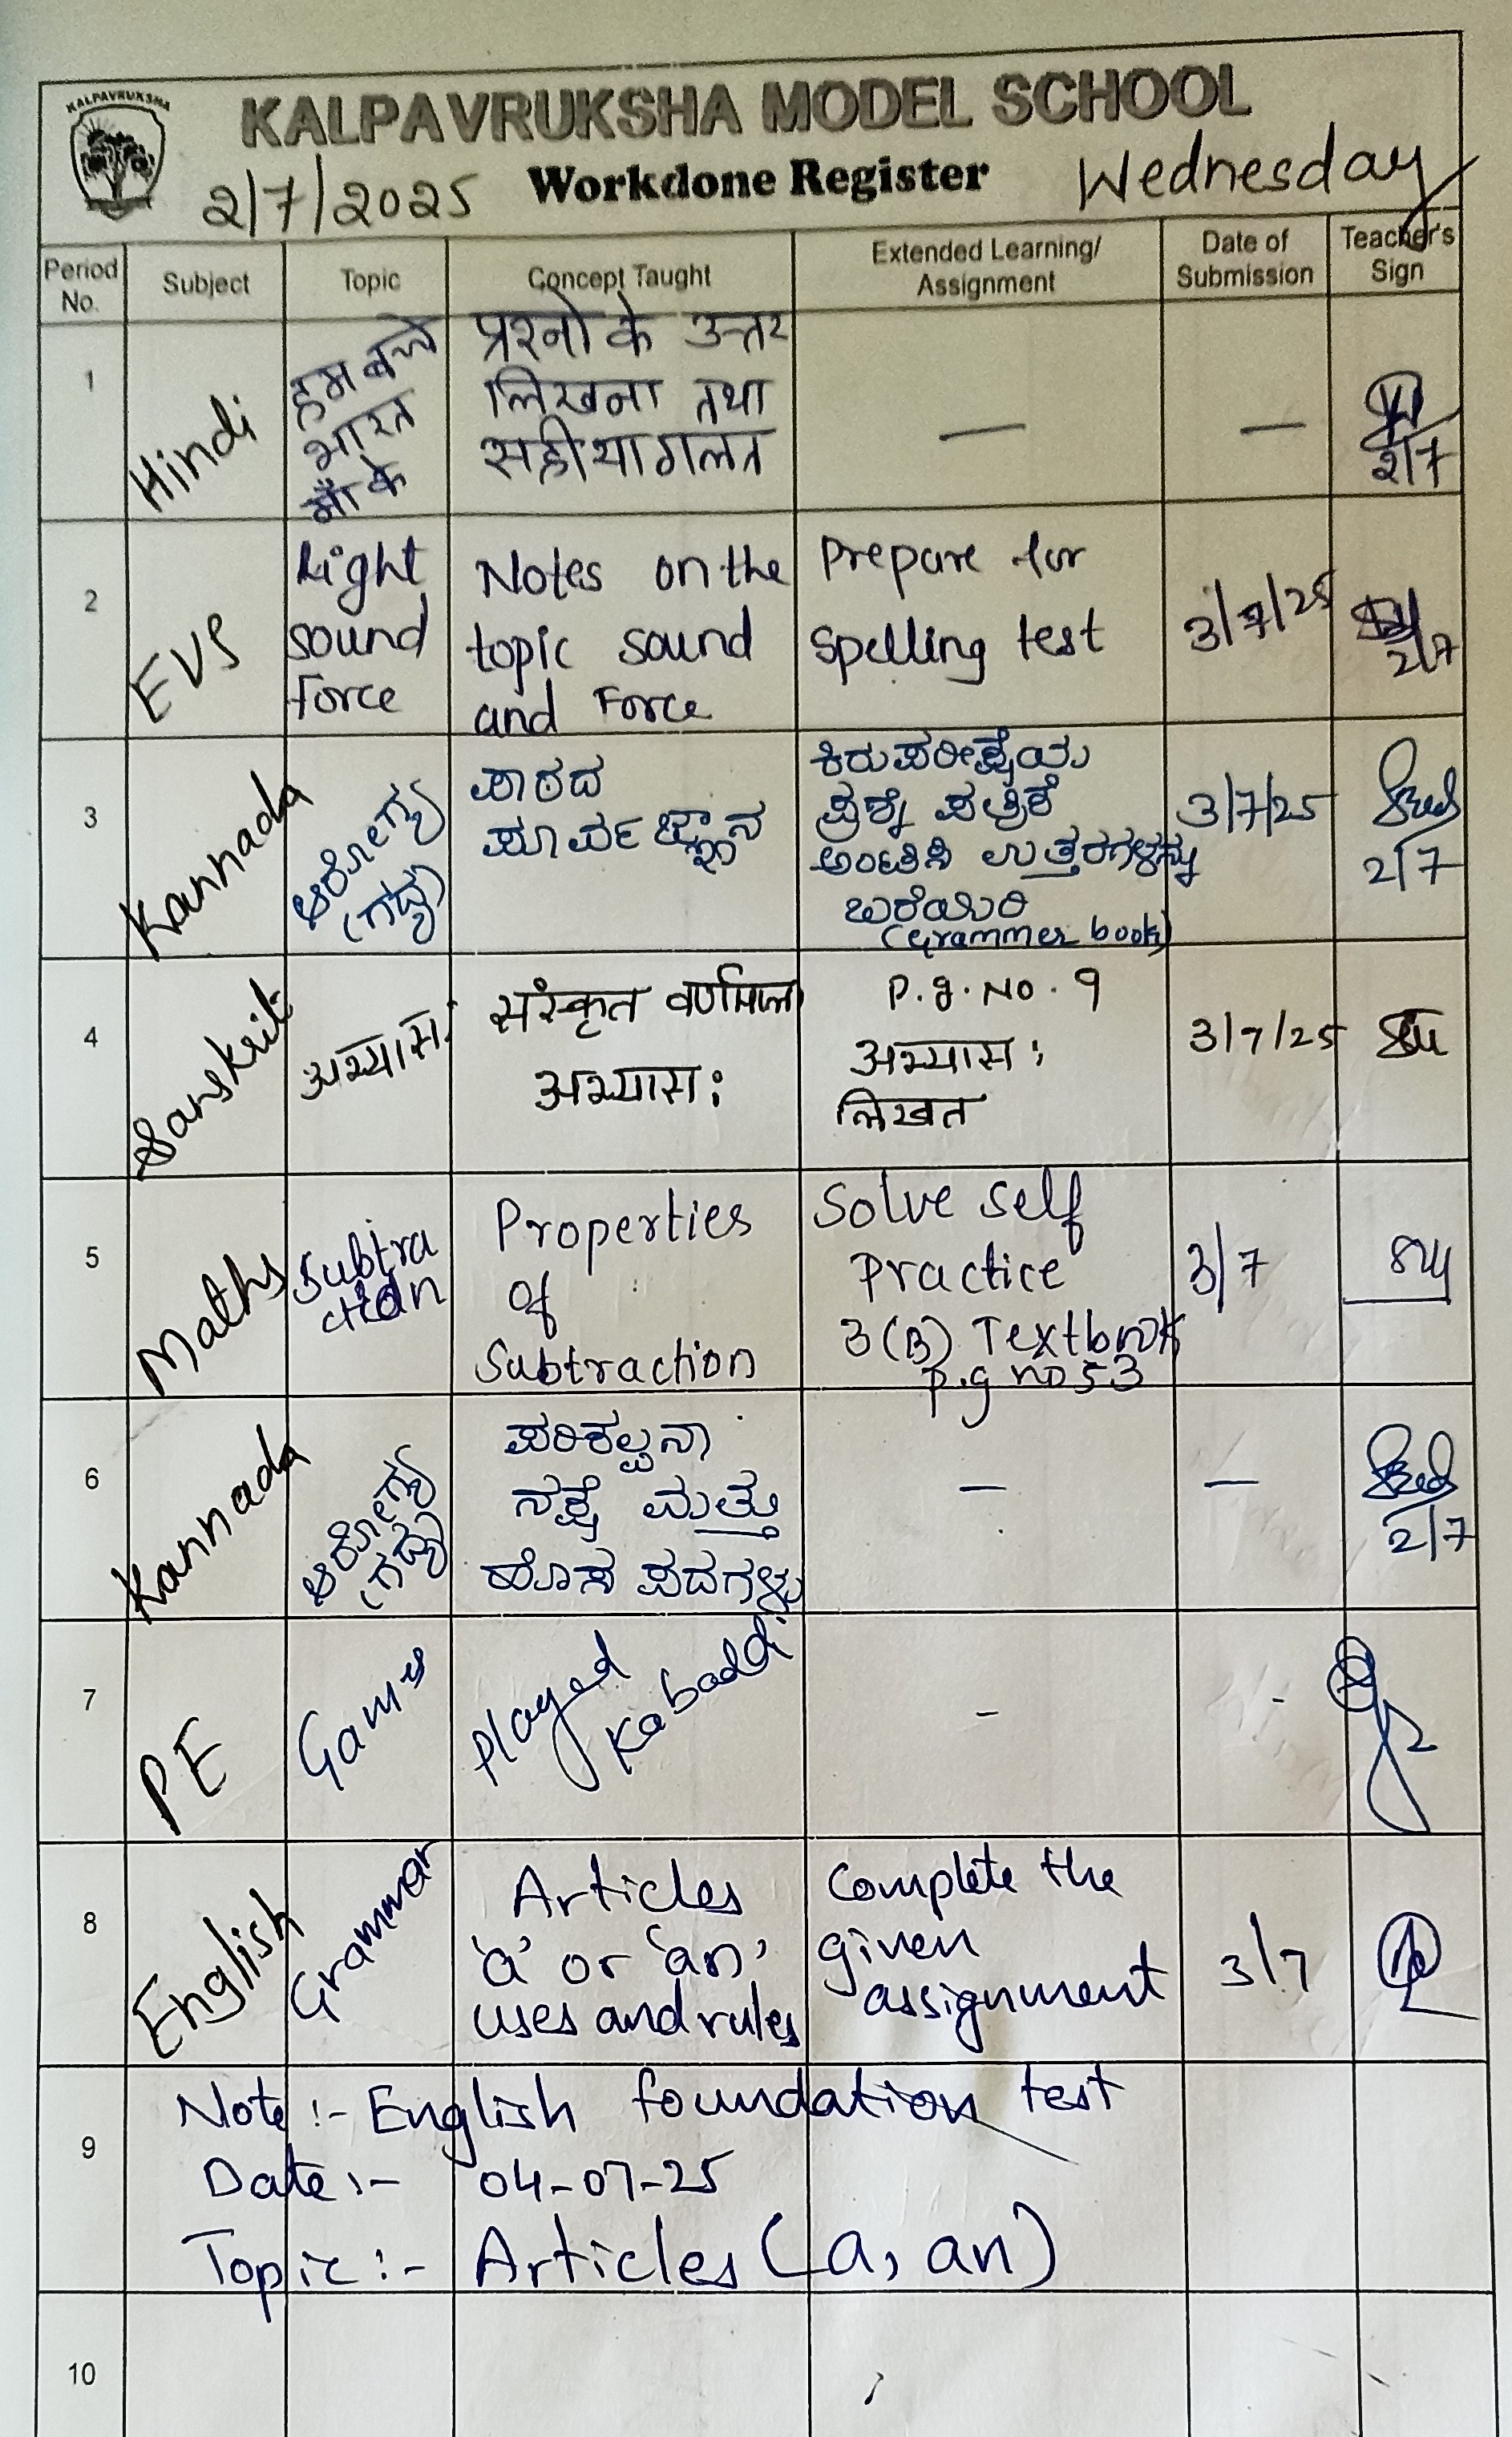 KALPAVRUKSHA
KALPAVRUKSHA MODEL SCHOOL
2/7/2025 Workdone Register Wednesday
Period No. Subject Topic Concept Taught Extended Learning/ Assignment Date of Submission Teacher's Sign
1
Hindi
हम बच्चे
भारत
माँ के
प्रश्नो के उत्तर
लिखना तथा
सही या गलत
—
—
2/7
2
EVS
Light
sound
force
Notes on the
topic sound
and Force
Prepare for
spelling test
3/7/25
2/7
3
Kannada
ಆರೋಗ್ಯ
(ಗದ್ಯ)
ಪಾಠದ
ಪೂರ್ವಜ್ಞಾನ
ಕಿರುಪರೀಕ್ಷೆಯ
ಪ್ರಶ್ನೆ ಪತ್ರಿಕೆ
ಅಂಟಿಸಿ ಉತ್ತರಗಳನ್ನು
ಬರೆಯಿರಿ
(Grammer book)
3/7/25
2/7
4
Sanskrit
अभ्यासः
संस्कृत वर्णमाला
अभ्यासः
P.g. No. 9
अभ्यासः
लिखत
3/7/25
5
Maths
Subtra
ction
Properties
of
Subtraction
Solve self
Practice
3(B) Textbook
p.g no 53
3/7
6
Kannada
ಆರೋಗ್ಯ
(ಗದ್ಯ)
ಪರಿಕಲ್ಪನಾ
ನಕ್ಷೆ ಮತ್ತು
ಹೊಸ ಪದಗಳು
—
—
2/7
7
PE
Games
played
Kabaddi
-
-
8
English
Grammar
Articles
'a' or 'an'
uses and rules
Complete the
given
assignment
3/7
9
Note :- English foundation test
Date :- 04-07-25
Topic :- Articles (a, an)
10